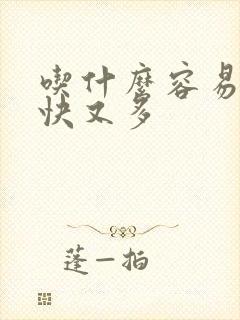 喫什麼容易
快又多
蓬一拍